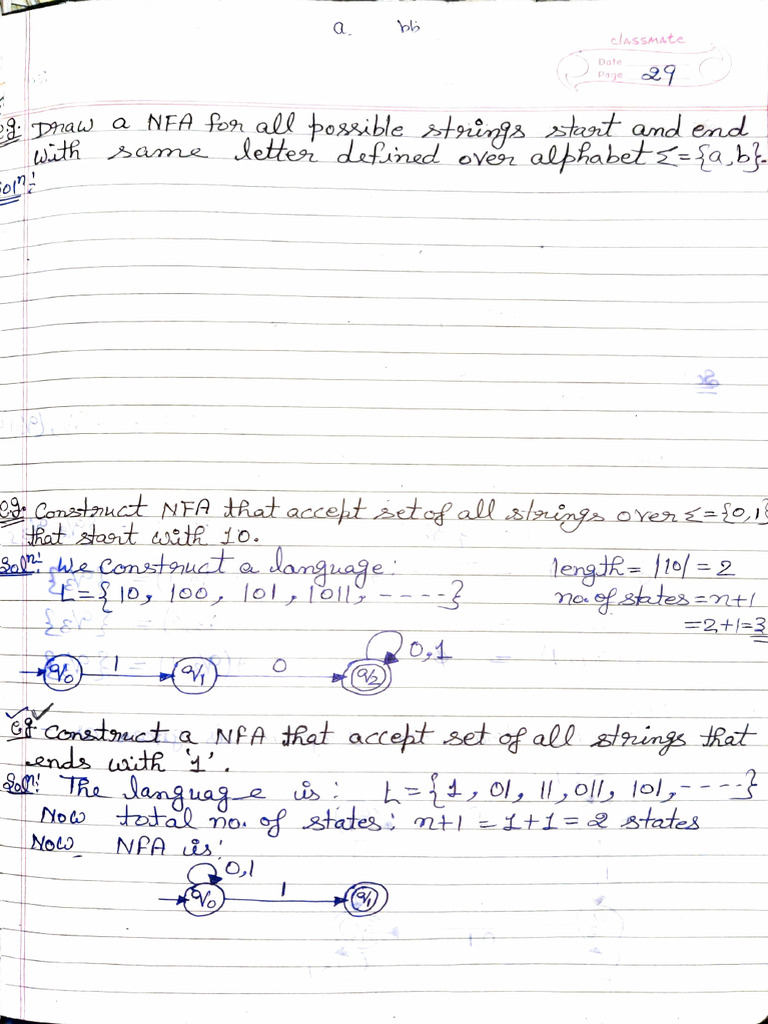 a. bb
classmate
Date
Page 29
eg. Draw a NFA for all possible strings start and end
with same letter defined over alphabet Σ={a,b}.
Solⁿ:
eg. Construct NFA that accept set of all strings over Σ={0,1}
that start with 10.
Solⁿ: We construct a language: length = |10| = 2
L={10, 100, 101, 1011, -----} no. of states = n+1
=2+1=3
q0 1 q1 0 q2 0,1
eg Construct a NFA that accept set of all strings that
ends with '1'.
Solⁿ: The language is: L={1, 01, 11, 011, 101, -----}
Now total no. of states: n+1 = 1+1 = 2 states
Now NFA is:
0,1
q0 1 q1